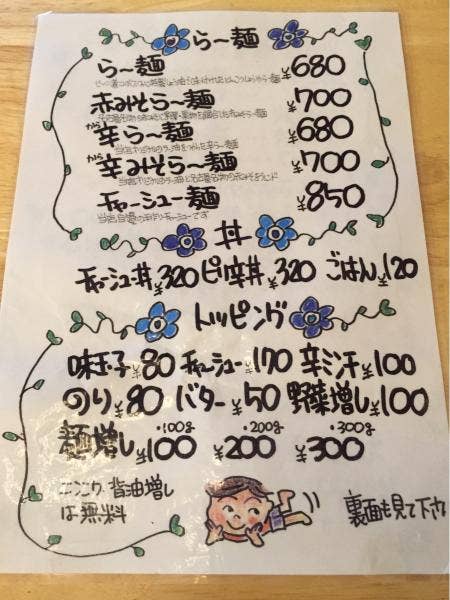 ら〜麺
ら〜麺 ¥680
赤みそら〜麺 ¥700
から
辛ら〜麺 ¥680
から
辛みそら〜麺 ¥700
チャーシュー麺 ¥850
当店自慢の手作りチャーシューです
丼
チャーシュー丼 ¥320 ピリ辛丼 ¥320 ごはん ¥120
トッピング
味玉子 ¥80 チャーシュー ¥170 辛ミンチ ¥100
のり ¥80 バター ¥50 野菜増し ¥100
麺増し ・100g ¥100 ・200g ¥200 ・300g ¥300
ニンニク 背油増し
は無料
裏面も見て下さい